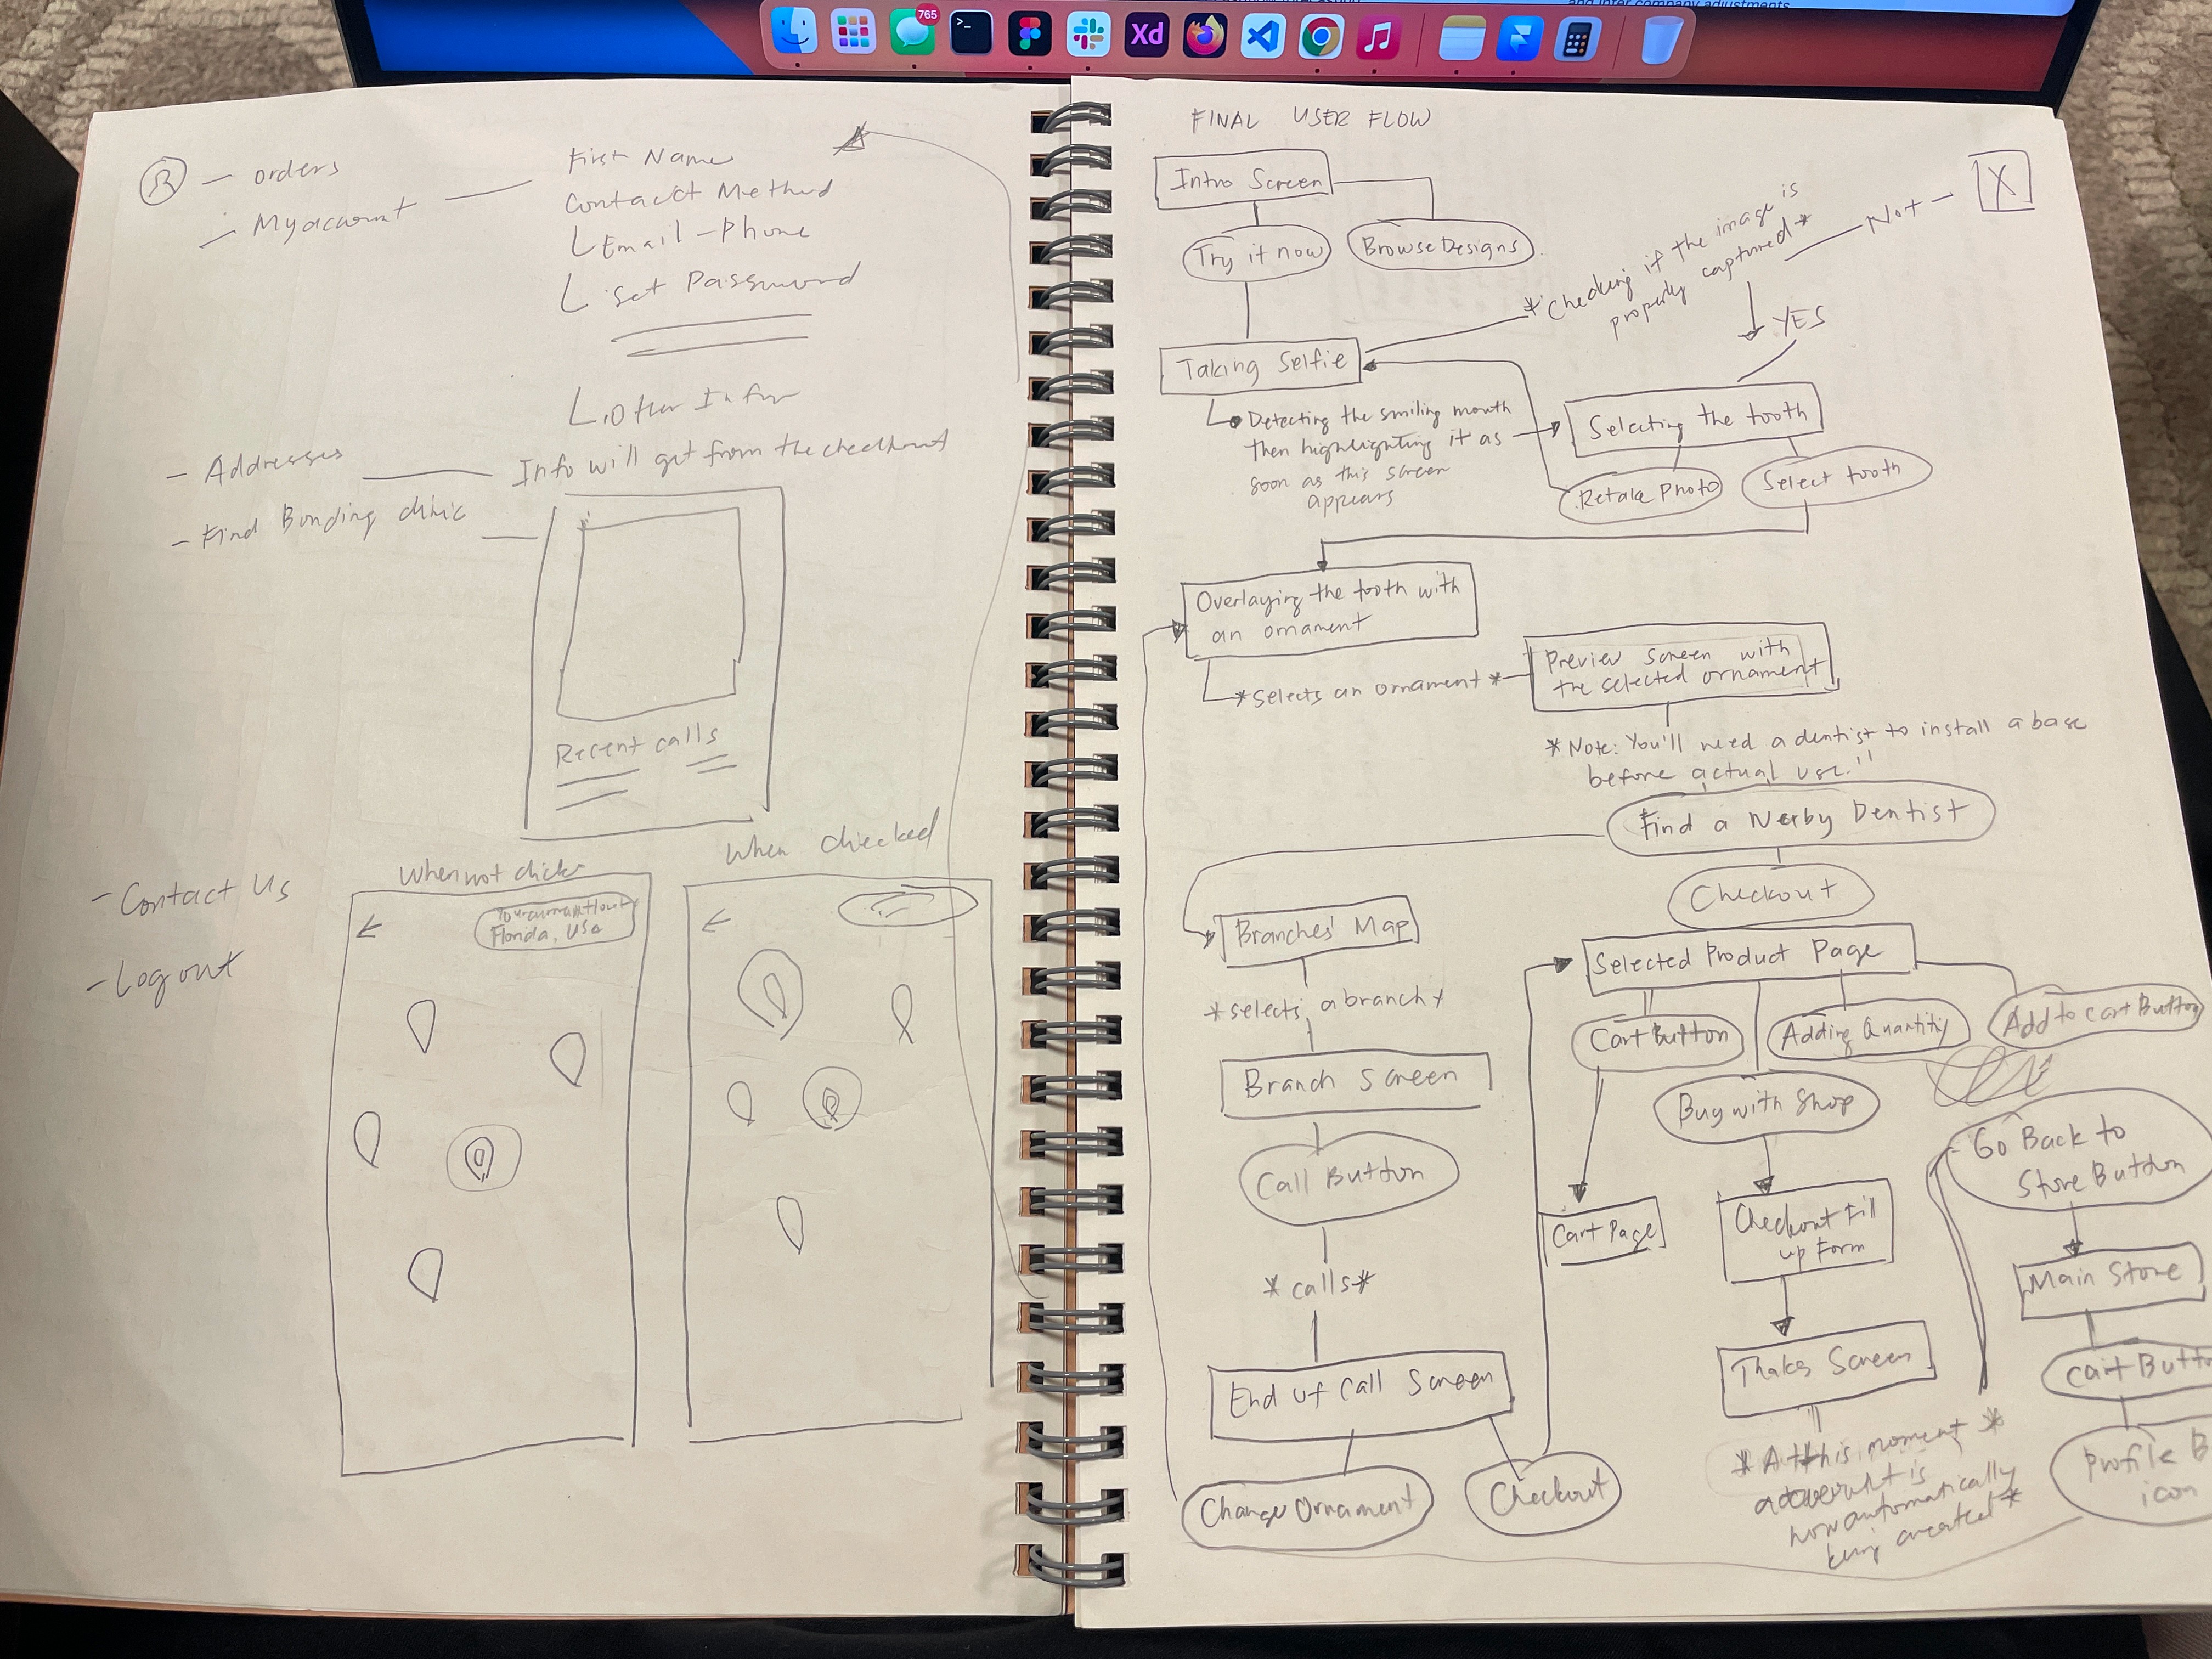 and inter company adjustments
765
Xd
- orders
- My account
First Name
Contact Method
Email - Phone
Set Password
Other Info
- Addresses
Info will get from the checkout
- Find Bonding clinic
Recent calls
When not click
When checked
Florida, USA
- Contact Us
- Logout
FINAL USER FLOW
Intro Screen
Try it now
Browse Designs
* Checking if the image is
properly captured *
Not
X
YES
Taking Selfie
Detecting the smiling mouth
then highlighting it as
soon as this screen
appears
Selecting the tooth
Retake Photo
Select tooth
Overlaying the tooth with
an ornament
* Selects an ornament *
Preview screen with
the selected ornament
* Note: You'll need a dentist to install a base
before actual use.!!
Find a Nerby Dentist
Checkout
Branches' Map
* selects a branch *
Branch Screen
Call Button
* calls *
End of Call Screen
Change Ornament
Checkout
Selected Product Page
Cart Button
Adding Quantity
Add to cart Button
Buy with Shop
Cart Page
Checkout Fill
up Form
Thaks Screen
* At this moment *
is
now automatically
being created *
Go Back to
Store Button
Main Store
Cart Butt
Profile B
icon